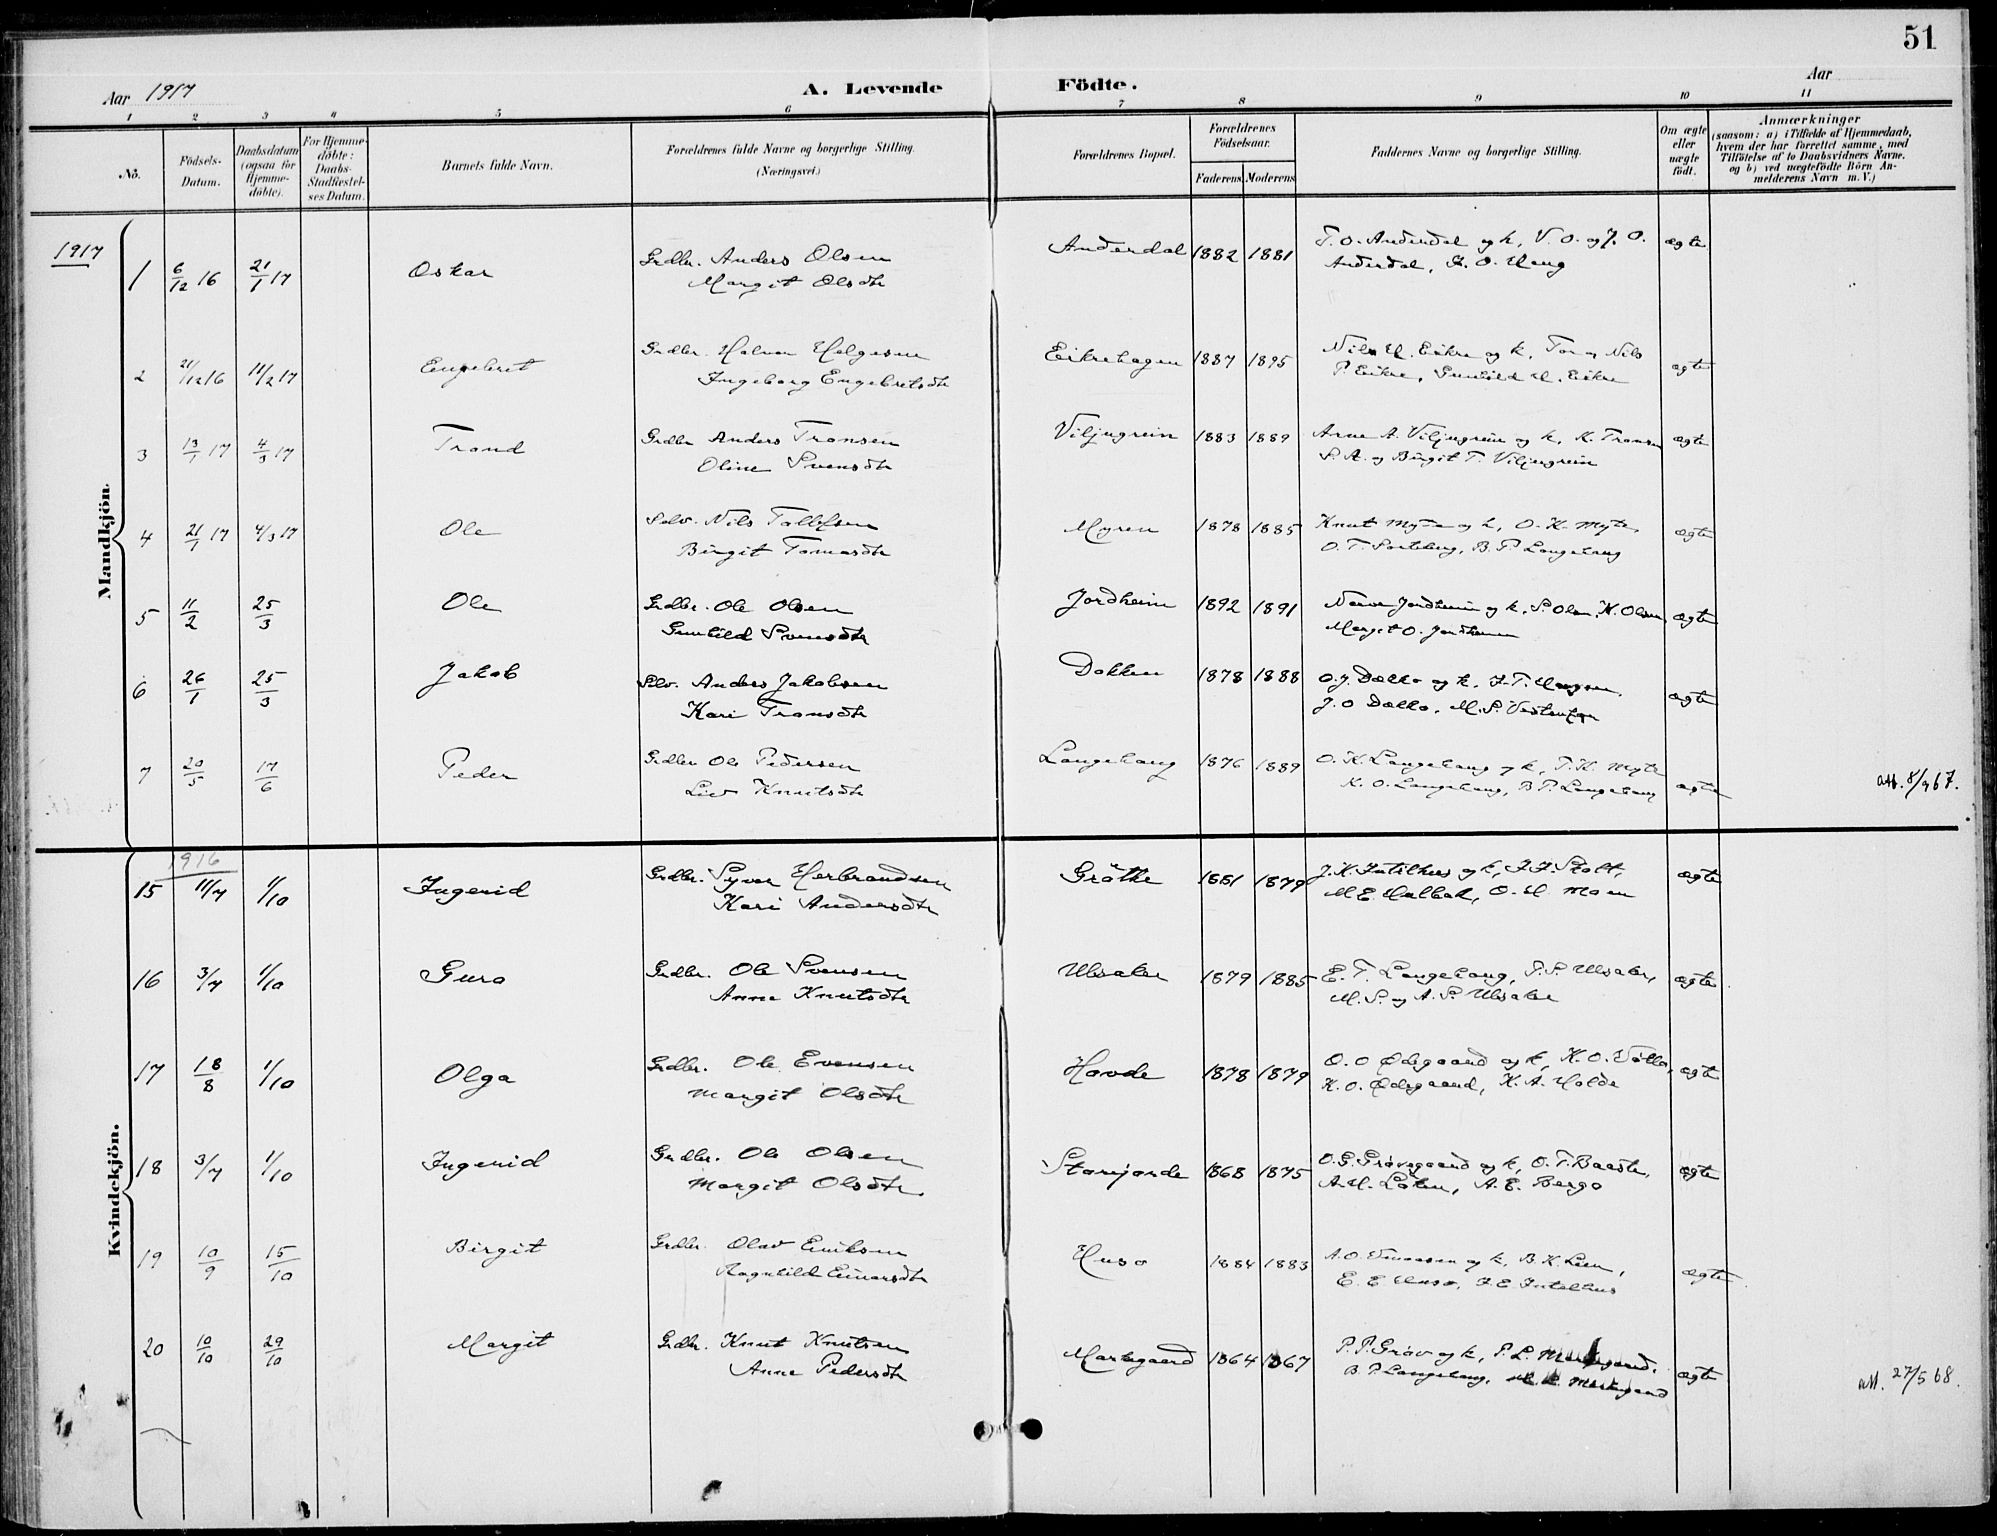 51
Aar 1917
A. Levende Födte.
Aar
1 2 3 4 5 6 7 8 9 10 11
No.
Födsels-Datum.
Daabsdatum (ogsaa for Hjemme-döbte).
For Hjemme-döbte: Daabs-Stadfæstel-ses Datum.
Barnets fulde Navn.
Forældrenes fulde Navne og borgerlige Stilling. (Næringsvei.)
Forældrenes Bopæl.
Forældrenes Födselsaar.
Faderens. Moderens.
Faddernes Navne og borgerlige Stilling.
Om ægte eller uægte födt.
Anmærkninger
(saasom: a) i Tilfælde af Hjemmedaab, hvem der har forrettet samme, med Tilföielse af to Daabsvidners Navne. og b) ved uægtefödte Börn An-melderens Navn m. V.)
Mandkjön.
1917
1 6/12 16 21/1 17 Oskar Grdbr. Anders Olsen Anderdal 1882 1881 T. O. Anderdal og k, V. O. og J. O. ægte
Margit Olsdtr Anderdal, O. Haug
2 21/12 16 11/2 17 Engebret Grdbr. Halvor Helgesen Eikrehagen 1887 1895 Nils H. Eikre og k, Tor og Nils ægte
Ingeborg Engebretsdtr P. Eikre, Gunhild H. Eikre
3 13/1 17 4/3 17 Trond Grdbr Anders Tronsen Viljugrein 1883 1889 Arne A. Viljugrein og k, K. Tronsen ægte
Oline Svensdtr S. A. og Birgit T. Viljugrein
4 21/1 17 4/3 17 Ole Selv. Nils Tollefsen Myren 1878 1885 Knut Myte og k, O. K. Myte, ægte
Birgit Tomasdtr O. T. Sorteberg, B. P. Langehaug
5 11/2 25/3 Ole Grdbr. Ole Olsen Jordheim 1892 1891 Narve Jordheim og k, S. Olsen, K. Olsen, ægte
Gunhild Svensdtr Margit O. Jordheim
6 26/1 25/3 Jakob Selv. Anders Jakobsen Dokken 1878 1888 O. J. Dokko og k, ægte
Kari Tronsdtr J. O Dokko, M. S.
7 20/5 17/6 Peder Grdbr Ole Pedersen Langehaug 1876 1889 O. K. Langehaug og k, T. K. Myte ægte
Liv Knutsdtr K. O. Langehaug, B P. Langehaug
att. 8/9 67.
Kvindekjön.
1916
15 11/7 1/10 Ingerid Grdbr. Syver Herbrandsen Gröthe 1881 1879 J. K. Intelhus og k, ægte
Kari Andersdtr M E. Halbak, O. H. Moen
16 3/7 1/10 Guro Grdbr. Ole Svensen Ulsaker 1879 1885 E. T. Langehaug, S. S. Ulsaker, ægte
Anne Knutsdtr M. S. og A. S. Ulsaker
17 18/8 1/10 Olga Grdbr. Ole Evensen Hovde 1878 1879 O. O Ødegaard og k, K. O. ægte
Margit Olsdtr K. O. Ødegaard, K. A. Holde
18 3/7 1/10 Ingerid Grdbr. Ole Olsen Storejorde 1868 1875 O. G. Grøvsgaard og k, ægte
Margit Olsdtr. A. H. Löken, A. E. Bergo
19 10/9 15/10 Birgit Grdbr. Olav Eriksen Huso 1884 1883 A. O. og k, B. K. Lien, ægte
Ragnhild Einarsdtr E. E Huso, Intelhus
20 10/10 29/10 Margit Grdbr. Knut Knutsen Markegaard 1864 1867 P. P. Grøv og k, P. L. Markegaard, ægte
Anne Pedersdtr B. P. Langehaug, Markegaard
att. 27/5 68.